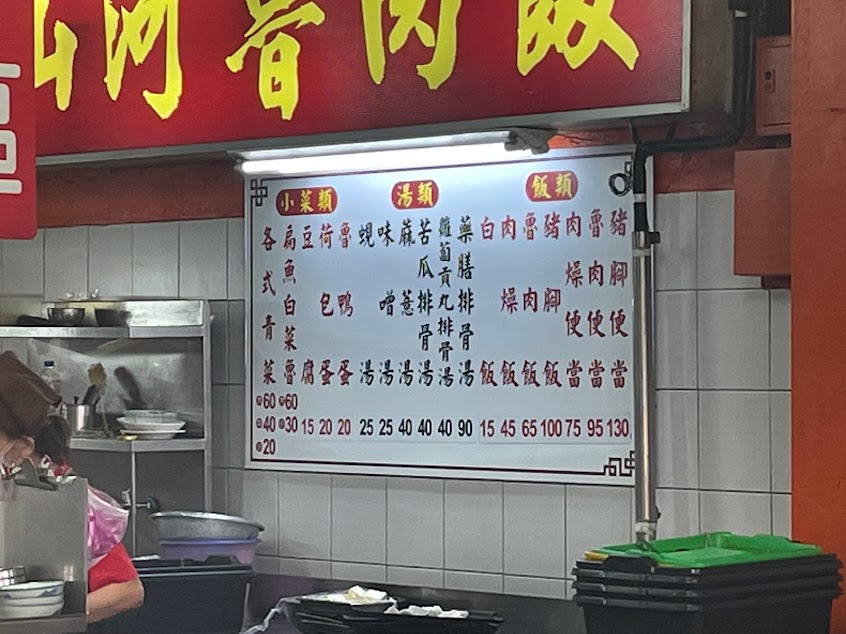 河魯肉飯
飯類
豬腳便當 130
魯肉便當 95
肉燥便當 75
豬腳飯 100
魯肉飯 65
肉燥飯 45
白飯 15
湯類
藥膳排骨湯 90
蘿蔔貢丸排骨湯 40
苦瓜排骨湯 40
麻薏湯 40
味噌湯 25
蜆湯 25
小菜類
魯鴨蛋 20
荷包蛋 20
豆腐 15
扁魚白菜魯 60 30
各式青菜 60 40 20